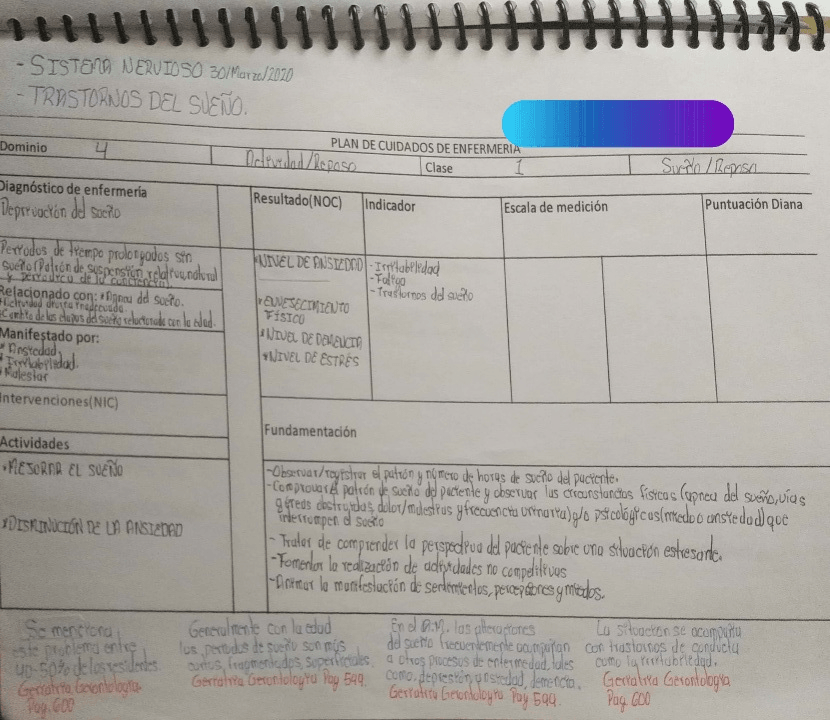 - SISTEMA NERVIOSO 30/Marzo/2020
- TRASTORNOS DEL SUEÑO.
PLAN DE CUIDADOS DE ENFERMERIA
Dominio 4 Actividad/Reposo Clase 1 Sueño/Reposo
Diagnóstico de enfermería
Deprivación del sueño
Resultado(NOC) Indicador Escala de medición Puntuación Diana
Periodos de tiempo prolongados sin
sueño (Patrón de suspensión relativa, natural
y periodica de la conciencia)
Relacionado con: *Apnea del sueño.
*Actividad diurna inadecuada
*Cambio de las etapas del sueño relacionada con la edad.
Manifestado por:
*Ansiedad
*Irritabilidad.
*Malestar
*NIVEL DE ANSIEDAD
*ENVEJECIMIENTO
FÍSICO
*NIVEL DE DEMENCIA
*NIVEL DE ESTRÉS
-Irritabilidad
-Fatiga
-Trastornos del sueño
Intervenciones(NIC)
Actividades
Fundamentación
*MEJORAR EL SUEÑO
-Observar/registrar el patrón y número de horas de sueño del paciente.
-Comprovar el patrón de sueño del paciente y observar las circunstancias físicas (apnea del sueño, vías
aéreas obstruidas, dolor/molestias y frecuencia urinaria) y/o psicológicas (miedo o ansiedad) que
interrumpen el sueño
*DISMINUCIÓN DE LA ANSIEDAD
- Tratar de comprender la perspectiva del paciente sobre una situación estresante.
-Fomentar la realización de actividades no competitivas
-Animar la manifestación de sentimientos, percepciones y miedos.
Se menciona
este problema entre
40-50% de los residentes.
Geriatria Gerontologia
Pag. 600
Generalmente con la edad
los periodos de sueño son más
cortos, fragmentados, superficiales.
Geriatria Gerontologia Pag 599.
En el A.M. las alteraciones
del sueño frecuentemente acompañan
a otros procesos de enfermedad, tales
como depresión, ansiedad, demencia.
Geriatria Gerontologia Pag 599.
La situación se acompaña
con trastornos de conducta
como la irritabilidad.
Geriatria Gerontologia
Pag. 600